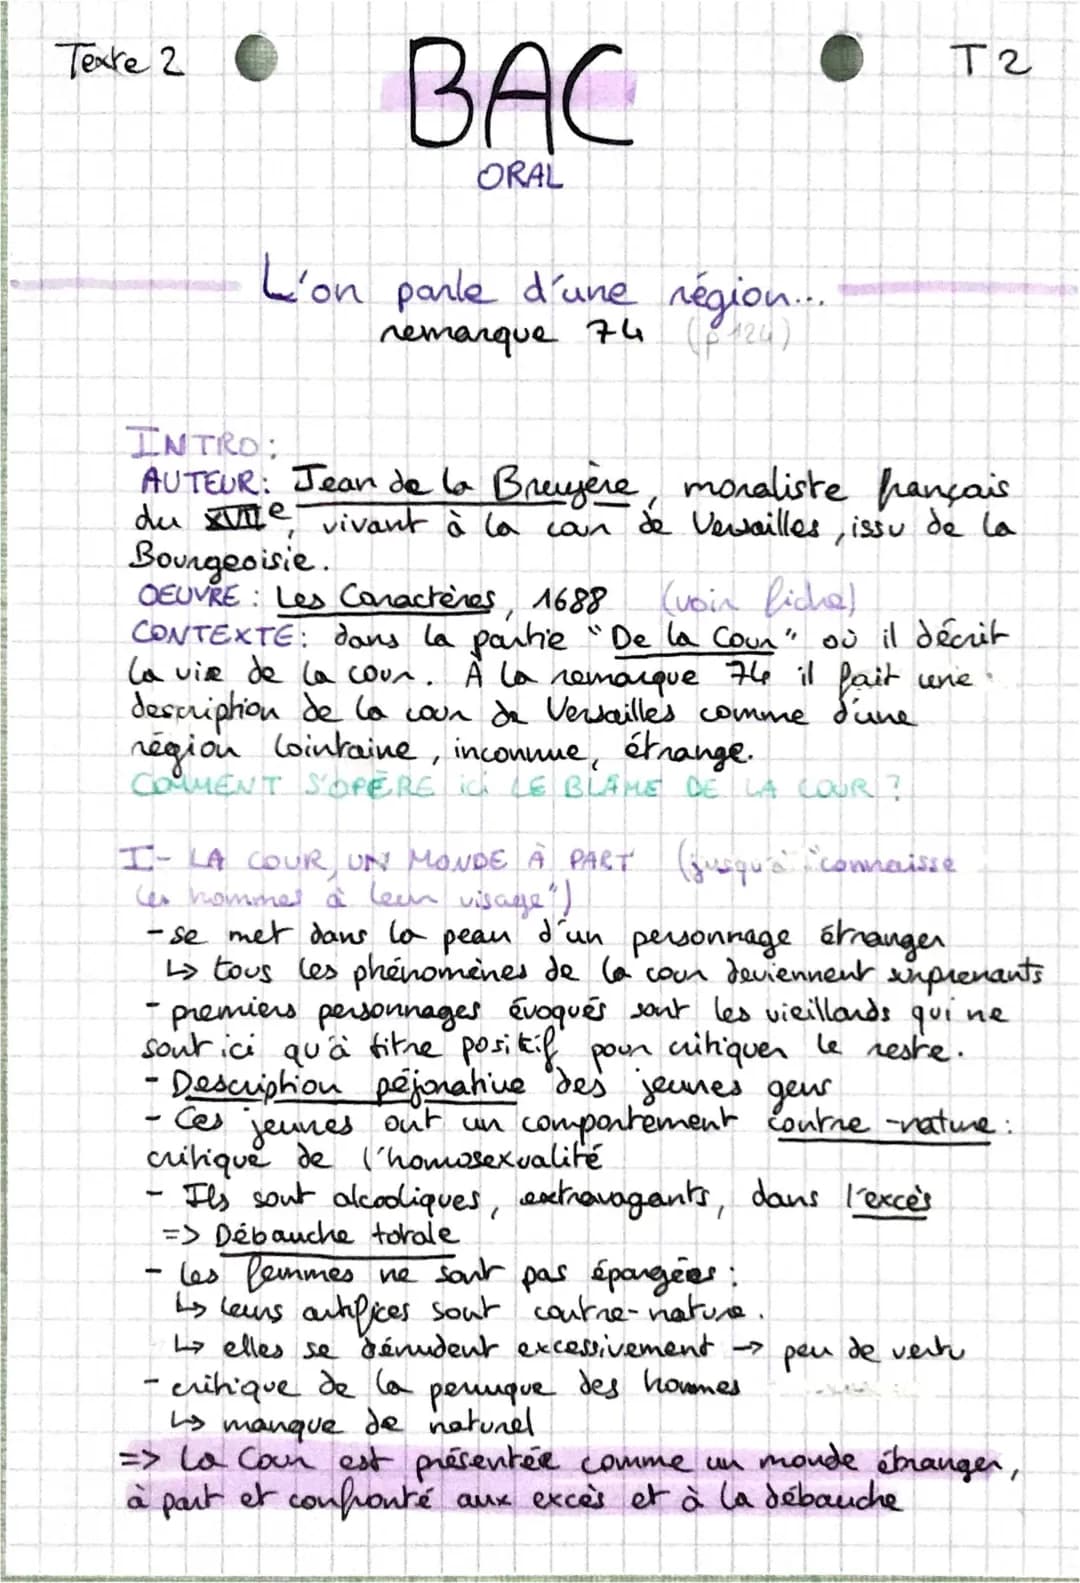 Texte 2
BAC
T2
ORAL
L'on parle d'une région...
remarque 74 (p 124)
INTRO:
AUTEUR: Jean de la Bruyère, moraliste français
du XVIIe, vivant à la cour de Versailles, issu de la
Bourgeoisie.
OEUVRE: Les Caractères, 1688 (voir fiche)
CONTEXTE: dans la partie "De la Cour" où il décrit
la vie de la cour. À la remarque 74 il fait une
description de la cour de Versailles comme d'une
région lointaine, inconnue, étrange.
COMMENT S'OPÈRE ici LE BLÂME DE LA COUR ?
I- LA COUR, UN MONDE À PART (jusqu'à "connaisse
les hommes à leur visage")
- se met dans la peau d'un personnage étranger
↳ tous les phénomènes de la cour deviennent surprenants
- premiers personnages évoqués sont les vieillards qui ne
sont ici qu'à titre positif pour critiquer le reste.
- Description péjorative des jeunes gens
- Ces jeunes ont un comportement contre-nature:
critique de l'homosexualité
- Ils sont alcooliques, extravagants, dans l'excès
=> Débauche totale
- les femmes ne sont pas épargées:
↳ leurs artifices sont contre-nature.
↳ elles se dénudent excessivement → peu de vertu
- critique de la perruque des hommes
↳ manque de naturel
=> La Cour est présentée comme un monde étranger,
à part et confronté aux excès et à la débauche